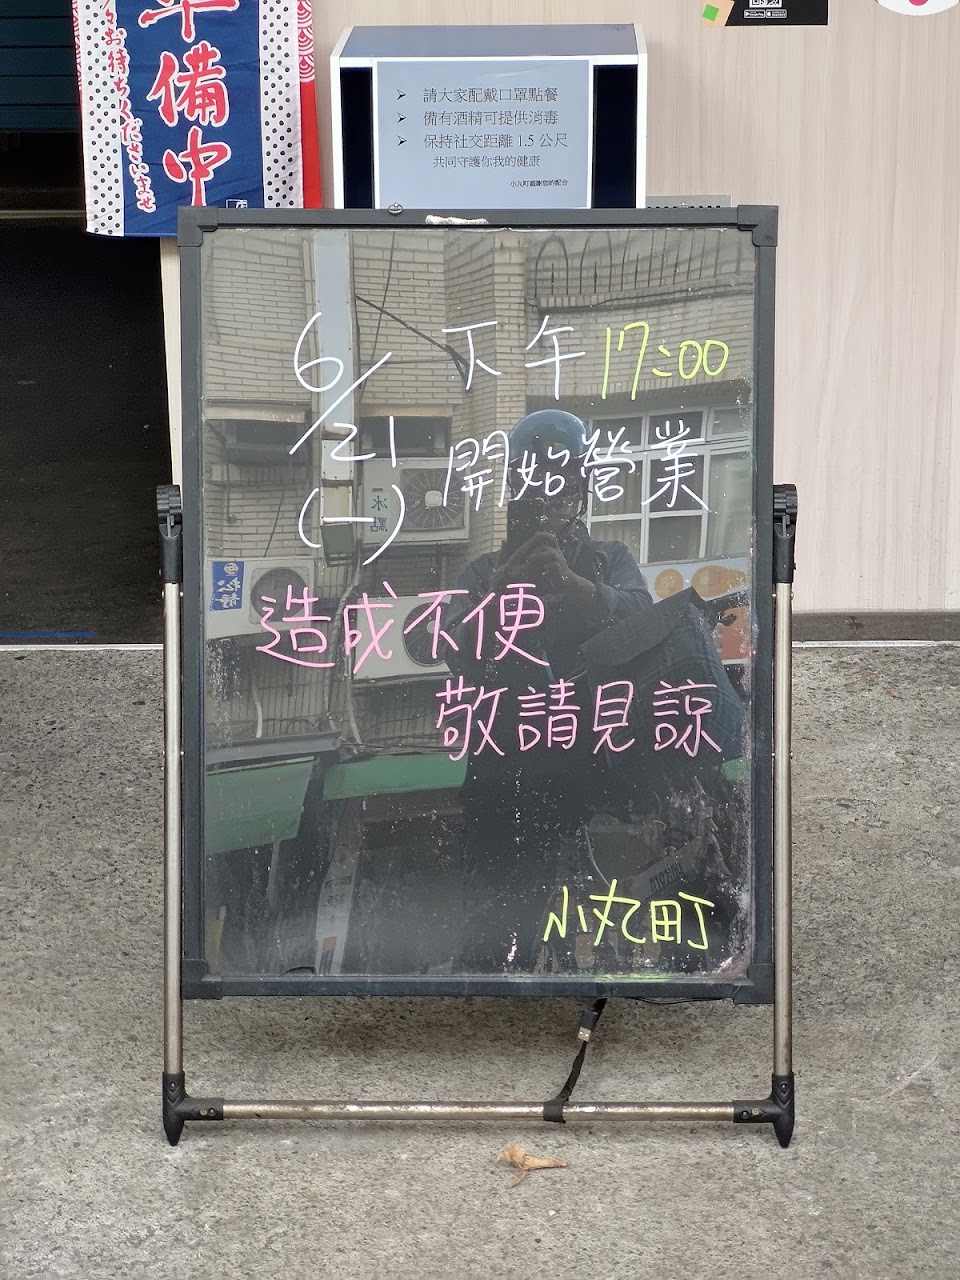 準備中
少々お待ちくださいませ
請大家配戴口罩點餐
備有酒精可提供消毒
保持社交距離 1.5 公尺
共同守護你我的健康
小丸町感謝您的配合
6/21 (一) 下午 17:00
開始營業
造成不便
敬請見諒
小丸町
冰點